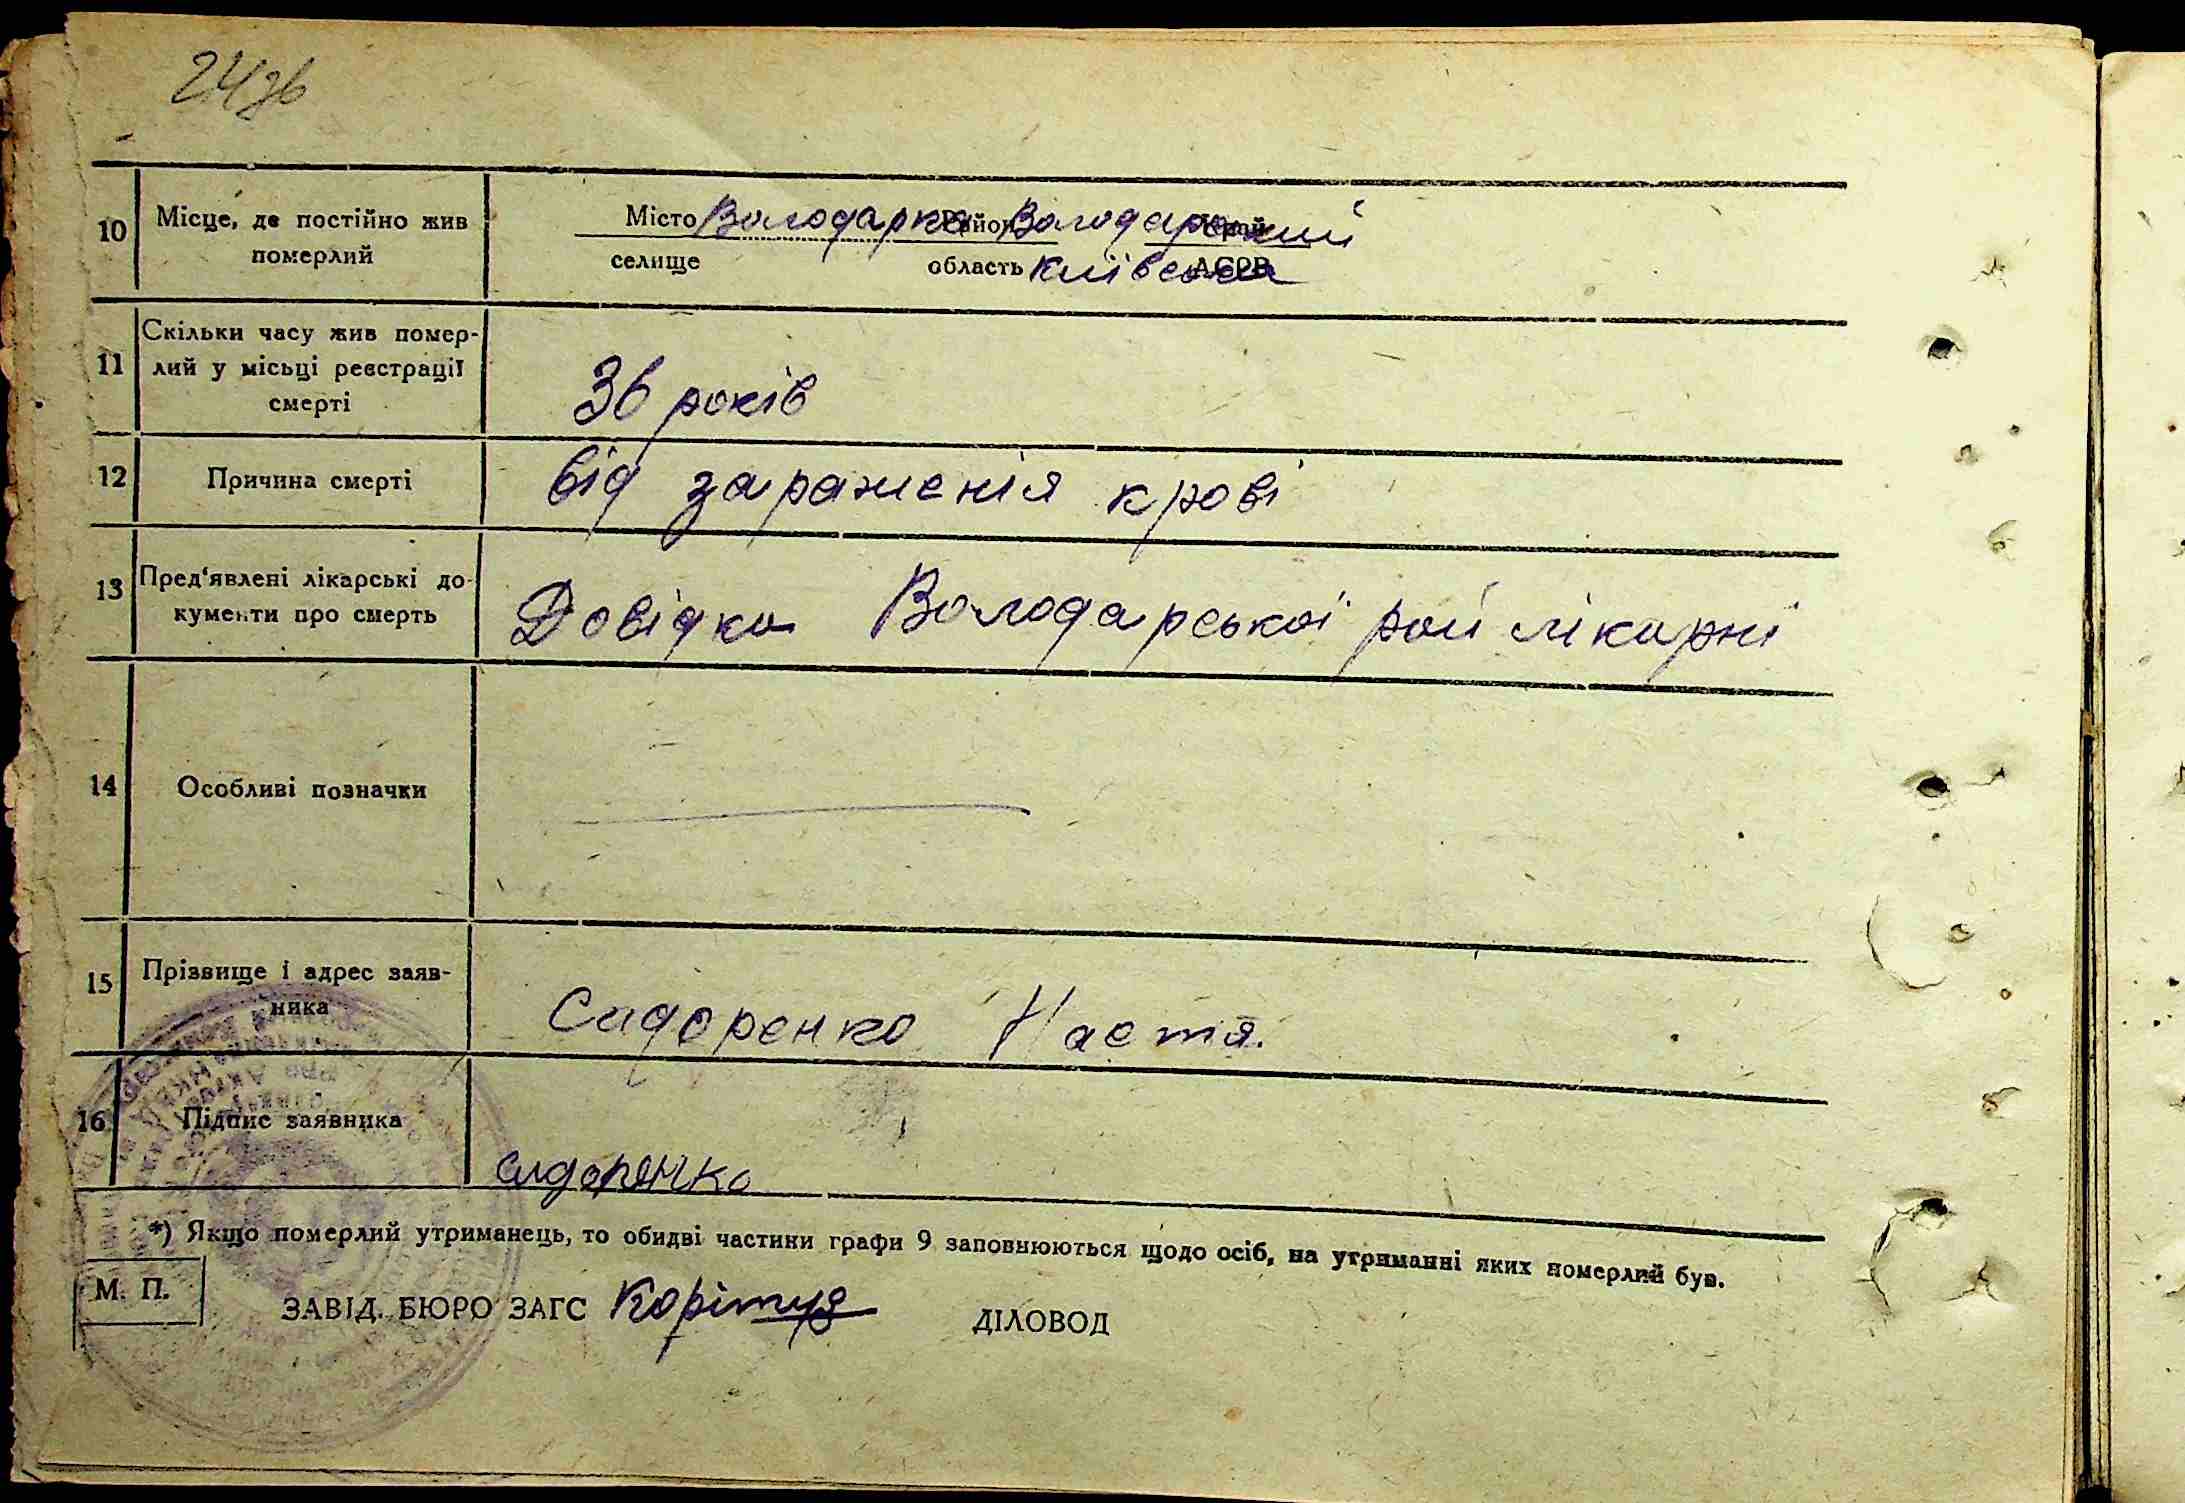 24зв
10 Місце, де постійно жив померлий
Місто Володарка Район Володарський Край
селище область Київська АСРР
11 Скільки часу жив помер-
лий у місьці реєстрації
смерті
36 років
12 Причина смерті від зараженія крові
13 Пред'явлені лікарські до-
кументи про смерть
Довідка Володарської рай лікарні
14 Особливі позначки
15 Прізвище і адрес заяв-
ника
Сидоренко Настя.
16 Підпис заявника
сидорянко
*) Якщо померлий утриманець, то обидві частини графи 9 заповнюються щодо осіб, на утриманні яких померлий був.
М. П.
ЗАВІД. БЮРО ЗАГС ДІЛОВОД